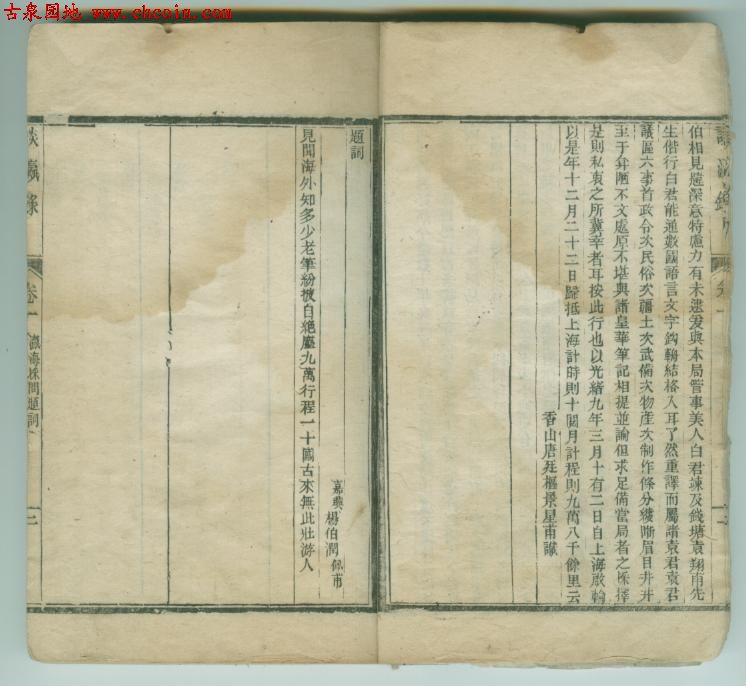 古泉园地 www.chcoin.com
伯相見遠深意特慮力有未逮爰與本局管事美人白君竦及錢塘袁翔甫先
生偕行白君能通數國語言文字鈎輈結格入耳了然重譯而屬諸袁君袁君
議區六事首政令次民俗次疆土次武備次物產次制作條分縷晰眉目井井
至于弇陋不文處原不堪與諸皇華筆記相提並論但求足備當局者之採擇
是則私衷之所冀幸者耳按此行也以光緒九年三月十有二日自上海啟輪
以是年十二月二十二日歸抵上海計時則十閱月計程則九萬八千餘里云
香山唐廷樞景星甫識
談瀛錄
卷一
二
題詞
見聞海外知多少老筆紛披自絶塵九萬行程一十國古來無此壯游人
嘉興楊伯潤佩甫
談瀛錄
卷一 瀛海採問題詞
二